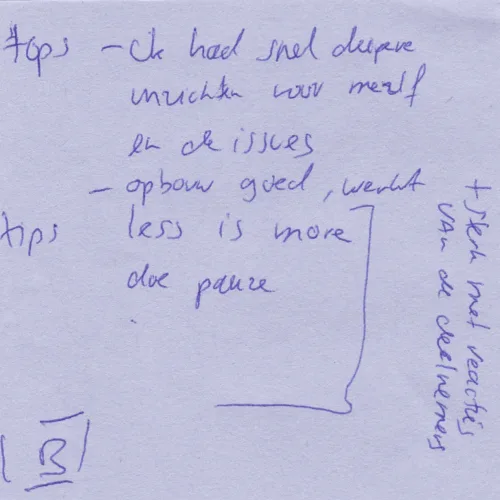 tops - ik had snel diepere
inzichten voor mezelf
en de issues
- opbouw goed, werkt
tips less is more
doe pauze
+ sterk met reacties
van de deelnemers
B